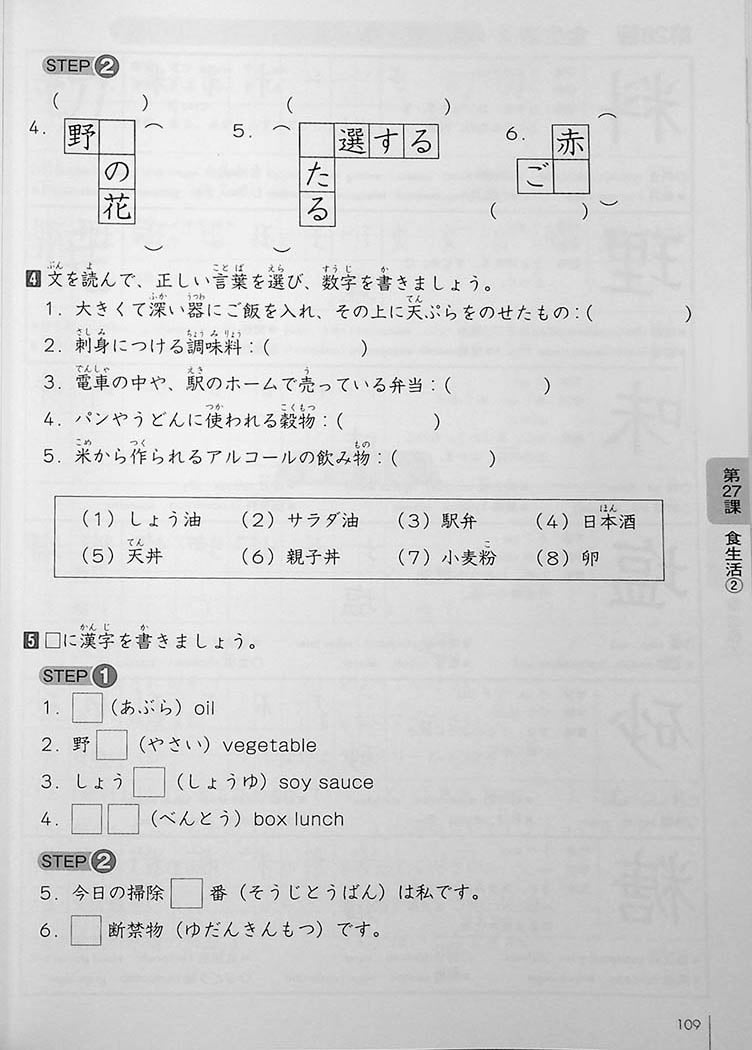 STEP 2
( ) ( )
4. 野 ( ) 5. ( ) 選する 6. 赤 ( )
の た ご
花 る ( )
4 文を読んで、正しい言葉を選び、数字を書きましょう。
1. 大きくて深い器にご飯を入れ、その上に天ぷらをのせたもの:( )
2. 刺身につける調味料:( )
3. 電車の中や、駅のホームで売っている弁当:( )
4. パンやうどんに使われる穀物:( )
5. 米から作られるアルコールの飲み物:( )
(1) しょう油 (2) サラダ油 (3) 駅弁 (4) 日本酒
(5) 天丼 (6) 親子丼 (7) 小麦粉 (8) 卵
5 □に漢字を書きましょう。
STEP 1
1. □ (あぶら) oil
2. 野□ (やさい) vegetable
3. しょう□ (しょうゆ) soy sauce
4. □□ (べんとう) box lunch
STEP 2
5. 今日の掃除□番 (そうじとうばん) は私です。
6. □断禁物 (ゆだんきんもつ) です。
第27課 食生活②
109